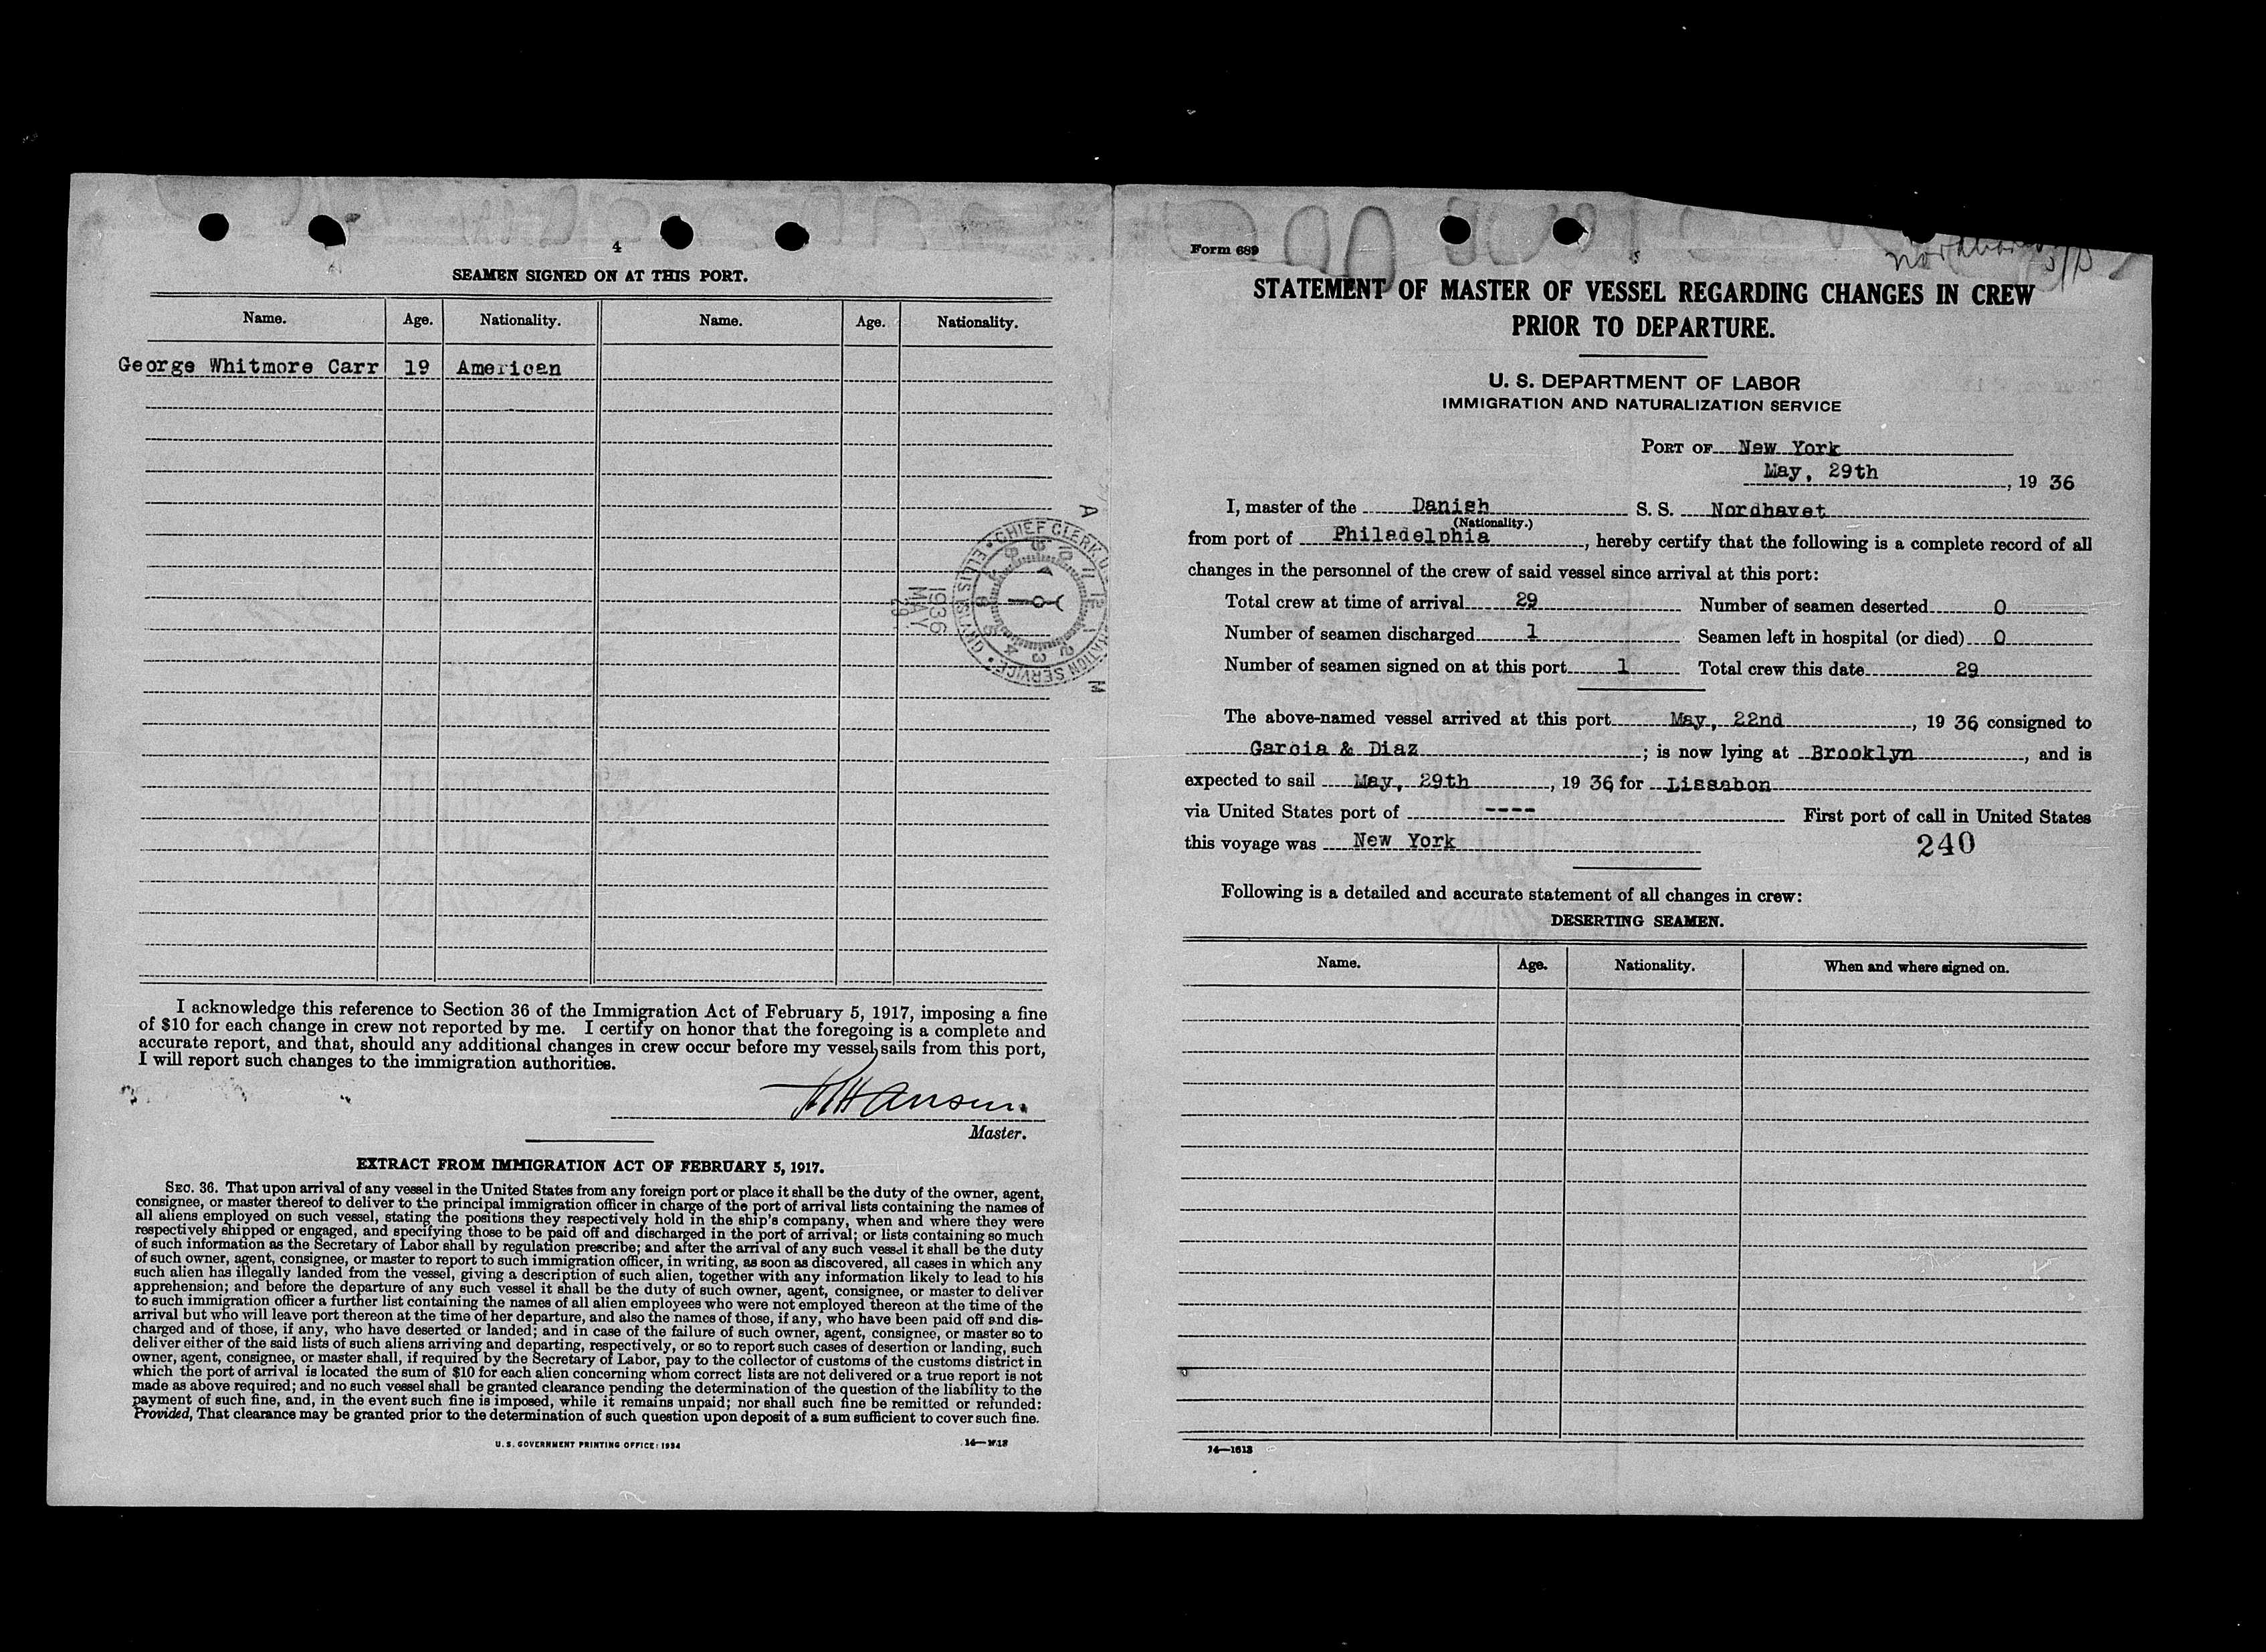 4
SEAMEN SIGNED ON AT THIS PORT.
Name. Age. Nationality. Name. Age. Nationality.
George Whitmore Carr 19 American
A
CHIEF CLERK
ELLIS ISLAND
SERVICE
1936
MAY
29
M
I acknowledge this reference to Section 36 of the Immigration Act of February 5, 1917, imposing a fine
of $10 for each change in crew not reported by me. I certify on honor that the foregoing is a complete and
accurate report, and that, should any additional changes in crew occur before my vessel sails from this port,
I will report such changes to the immigration authorities.
Hansen
Master.
EXTRACT FROM IMMIGRATION ACT OF FEBRUARY 5, 1917.
SEC. 36. That upon arrival of any vessel in the United States from any foreign port or place it shall be the duty of the owner, agent,
consignee, or master thereof to deliver to the principal immigration officer in charge of the port of arrival lists containing the names of
all aliens employed on such vessel, stating the positions they respectively hold in the ship's company, when and where they were
respectively shipped or engaged, and specifying those to be paid off and discharged in the port of arrival; or lists containing so much
of such information as the Secretary of Labor shall by regulation prescribe; and after the arrival of any such vessel it shall be the duty
of such owner, agent, consignee, or master to report to such immigration officer, in writing, as soon as discovered, all cases in which any
such alien has illegally landed from the vessel, giving a description of such alien, together with any information likely to lead to his
apprehension; and before the departure of any such vessel it shall be the duty of such owner, agent, consignee, or master to deliver
to such immigration officer a further list containing the names of all alien employees who were not employed thereon at the time of the
arrival but who will leave port thereon at the time of her departure, and also the names of those, if any, who have been paid off and dis-
charged and of those, if any, who have deserted or landed; and in case of the failure of such owner, agent, consignee, or master so to
deliver either of the said lists of such aliens arriving and departing, respectively, or so to report such cases of desertion or landing, such
owner, agent, consignee, or master shall, if required by the Secretary of Labor, pay to the collector of customs of the customs district in
which the port of arrival is located the sum of $10 for each alien concerning whom correct lists are not delivered or a true report is not
made as above required; and no such vessel shall be granted clearance pending the determination of the question of the liability to the
payment of such fine, and, in the event such fine is imposed, while it remains unpaid; nor shall such fine be remitted or refunded:
Provided, That clearance may be granted prior to the determination of such question upon deposit of a sum sufficient to cover such fine.
U. S. GOVERNMENT PRINTING OFFICE: 1934
Form 689
STATEMENT OF MASTER OF VESSEL REGARDING CHANGES IN CREW
PRIOR TO DEPARTURE.
U. S. DEPARTMENT OF LABOR
IMMIGRATION AND NATURALIZATION SERVICE
PORT OF New York
May, 29th, 19 36
I, master of the Danish S. S. Nordhavet
(Nationality.)
from port of Philadelphia, hereby certify that the following is a complete record of all
changes in the personnel of the crew of said vessel since arrival at this port:
Total crew at time of arrival 29 Number of seamen deserted 0
Number of seamen discharged 1 Seamen left in hospital (or died) 0
Number of seamen signed on at this port 1 Total crew this date 29
The above-named vessel arrived at this port May, 22nd, 19 36 consigned to
Garcia & Diaz; is now lying at Brooklyn, and is
expected to sail May, 29th, 19 36, for Lissabon
via United States port of ---- First port of call in United States
this voyage was New York
240
Following is a detailed and accurate statement of all changes in crew:
DESERTING SEAMEN.
Name. Age. Nationality. When and where signed on.
14—1613